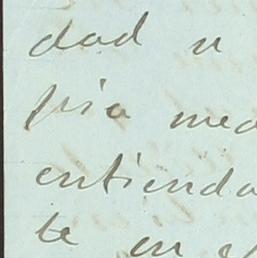 dad u
pia me
entienda
te en